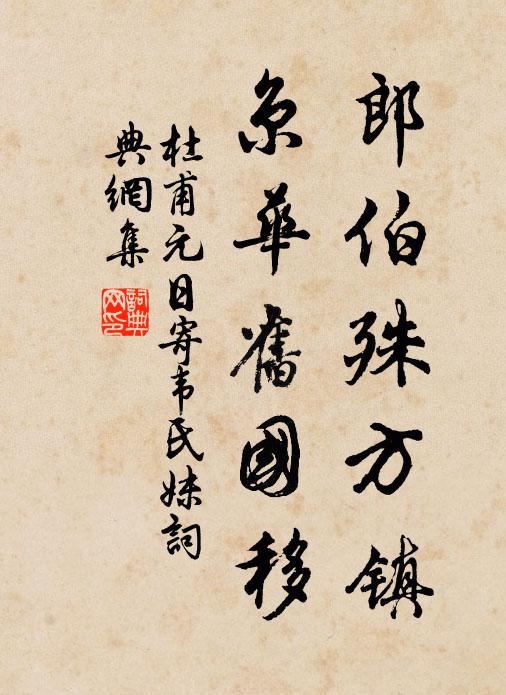 郎伯殊方镇
京華舊國移
杜甫元日寄韦氏妹詞
典網集
詞典网印